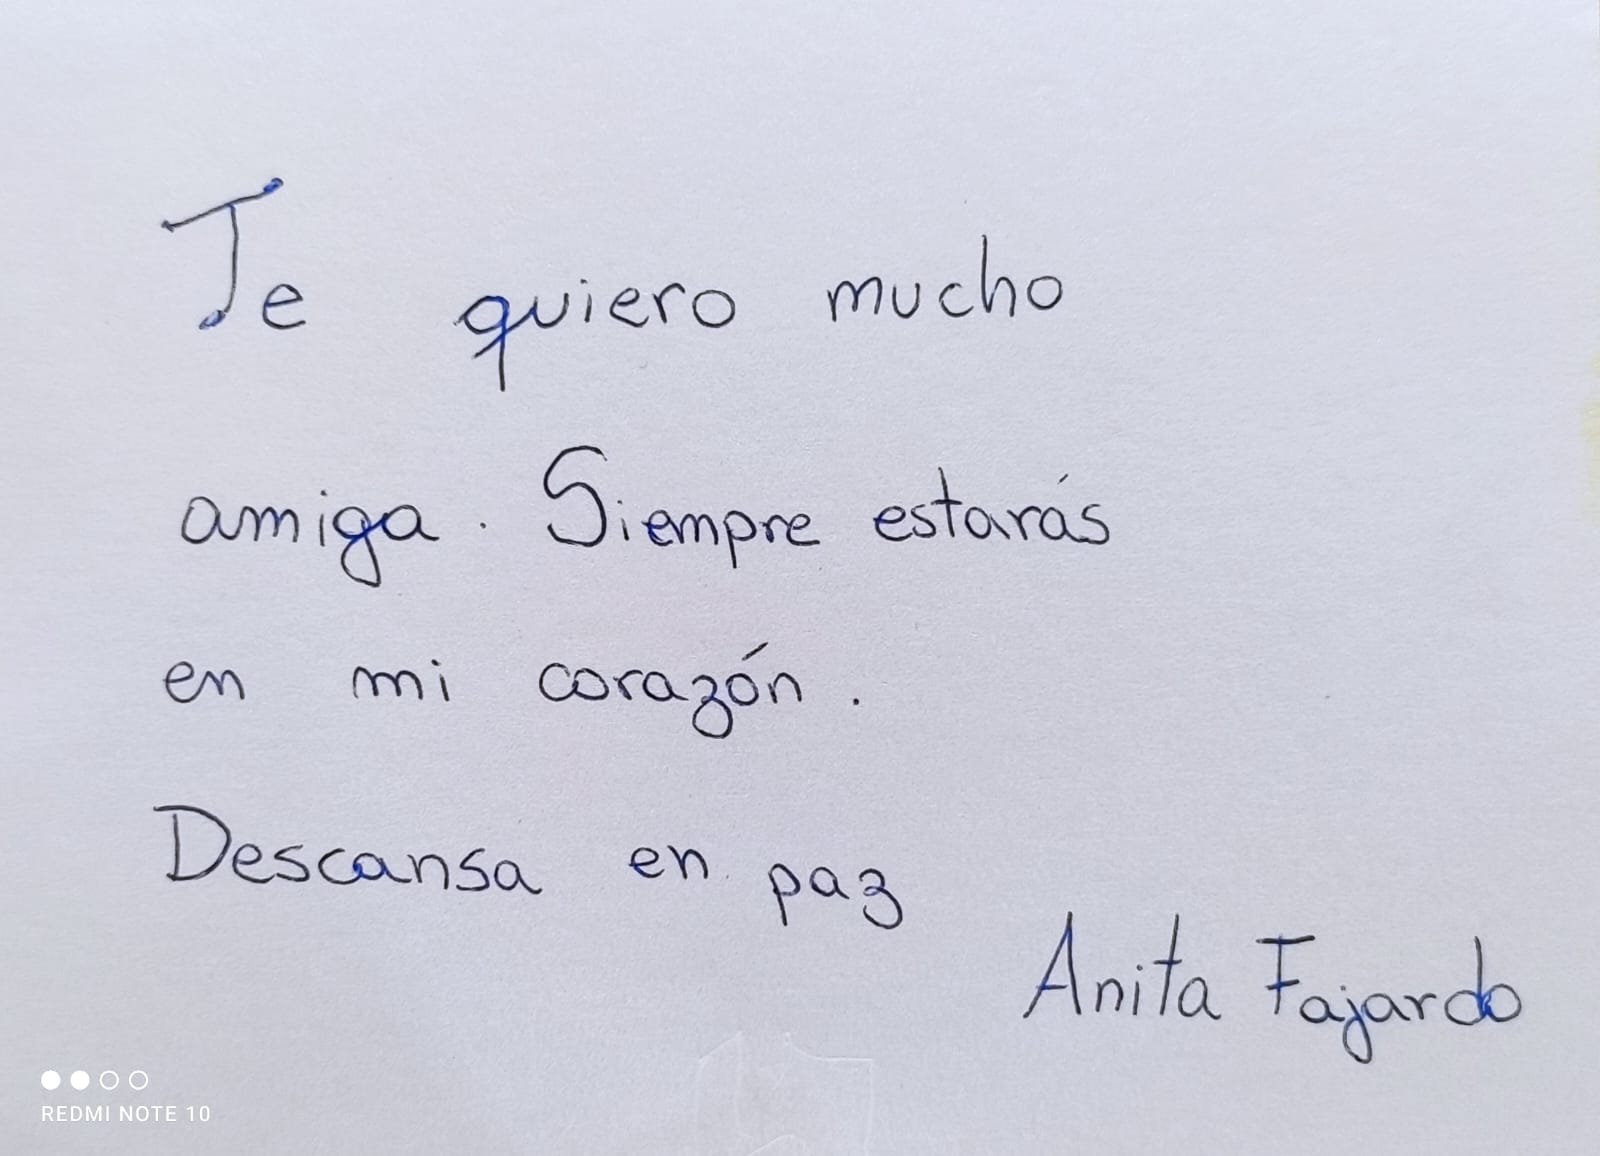 Te quiero mucho
amiga. Siempre estarás
en mi corazón.
Descansa en paz
Anita Fajardo
REDMI NOTE 10